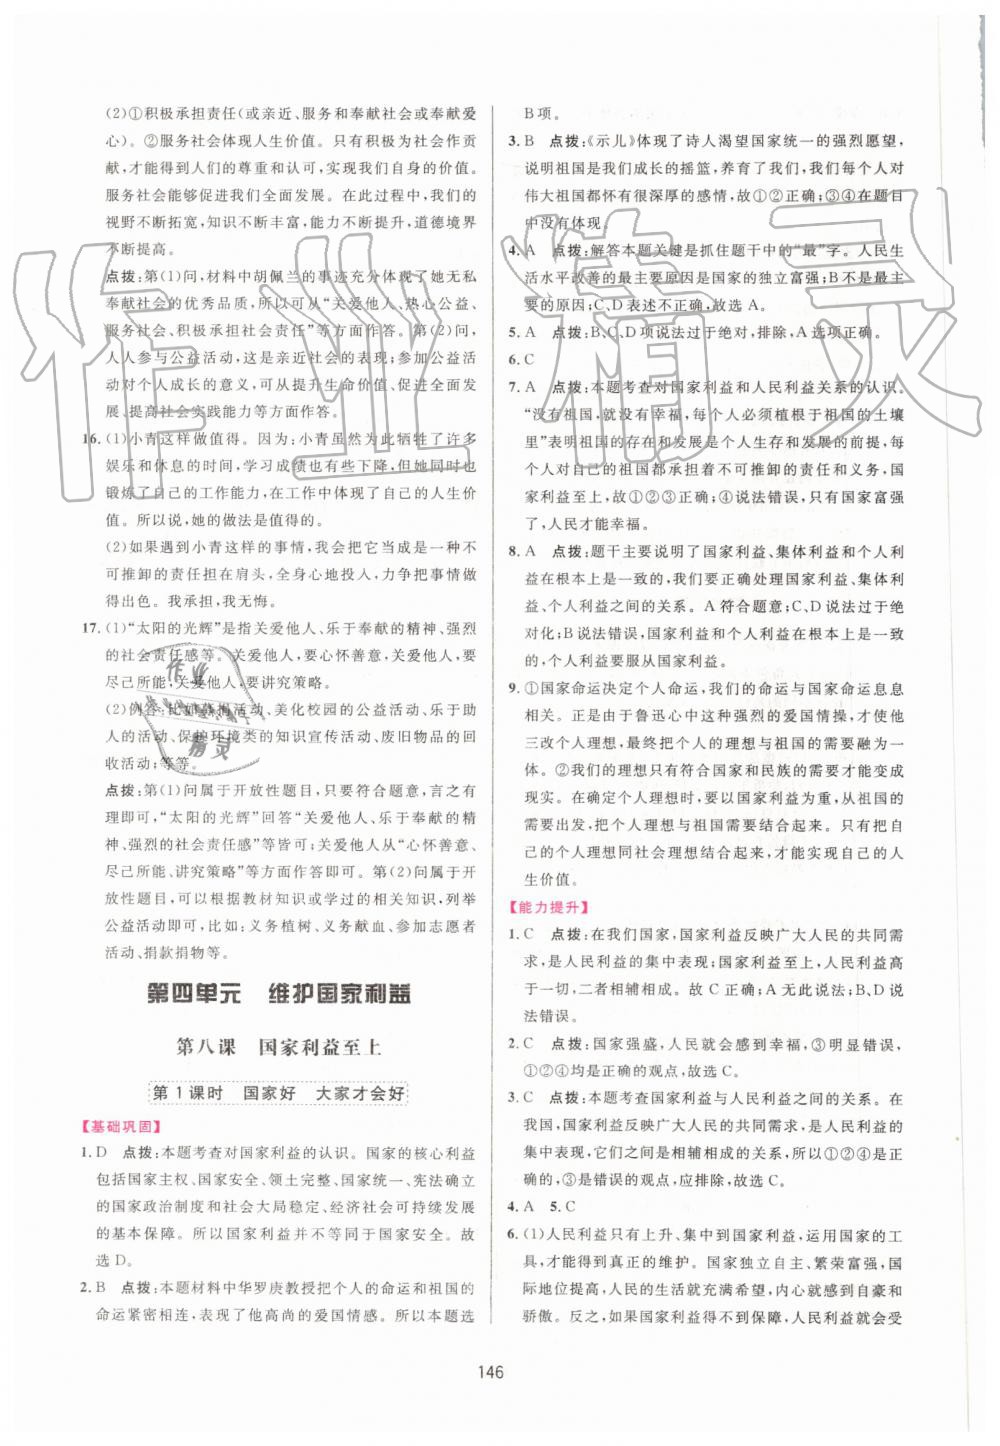 (2)①积极承担责任(或亲近、服务和奉献社会或奉献爱
心)。②服务社会体现人生价值。只有积极为社会作贡
献,才能得到人们的尊重和认可,实现我们自身的价值。
服务社会能够促进我们全面发展。在此过程中,我们的
视野不断拓宽,知识不断丰富,能力不断提升,道德境界
不断提高。
点拨:第(1)问,材料中胡佩兰的事迹充分体现了她无私
奉献社会的优秀品质,所以可从“关爱他人、热心公益、
服务社会、积极承担社会责任”等方面作答。第(2)问,
人人参与公益活动,这是亲近社会的表现;参加公益活
动对个人成长的意义,可从提升生命价值、促进全面发
展、提高社会实践能力等方面作答。
16. (1)小青这样做值得。因为:小青虽然为此牺牲了许多
娱乐和休息的时间,学习成绩也有些下降,但她同时也
锻炼了自己的工作能力,在工作中体现了自己的人生价
值。所以说,她的做法是值得的。
(2)如果遇到小青这样的事情,我会把它当成是一种不
可推卸的责任担在肩头,全身心地投入,力争把事情做
得出色。我承担,我无悔。
17. (1)“太阳的光辉”是指关爱他人、乐于奉献的精神、强烈
的社会责任感等。关爱他人,要心怀善意,关爱他人,要
尽己所能,关爱他人,要讲究策略。
(2)例答:比如募捐活动、美化校园的公益活动、乐于助
人的活动、保护环境类的知识宣传活动、废旧物品的回
收活动;等等。
点拨:第(1)问属于开放性题目,只要符合题意,言之有
理即可,“太阳的光辉”回答“关爱他人、乐于奉献的精
神、强烈的社会责任感”等皆可;关爱他人从“心怀善意、
尽己所能、讲究策略”等方面作答即可。第(2)问属于开
放性题目,可以根据教材知识或学过的相关知识,列举
公益活动即可,比如:义务植树、义务献血、参加志愿者
活动、捐款捐物等。
第四单元 维护国家利益
第八课 国家利益至上
第1课时 国家好 大家才会好
【基础巩固】
1. D 点拨:本题考查对国家利益的认识。国家的核心利益
包括国家主权、国家安全、领土完整、国家统一、宪法确立
的国家政治制度和社会大局稳定、经济社会可持续发展
的基本保障。所以国家利益并不等同于国家安全。故
选D。
2. B 点拨:本题材料中华罗庚教授把个人的命运和祖国的
命运紧密相连,表现了他高尚的爱国情感。所以本题选
B项。
3. B 点拨:《示儿》体现了诗人渴望国家统一的强烈愿望,
说明祖国是我们成长的摇篮,养育了我们,我们每个人对
伟大祖国都怀有很深厚的感情,故①②正确;③④在题目
中没有体现。
4. A 点拨:解答本题关键是抓住题干中的“最”字。人民生
活水平改善的最主要原因是国家的独立富强;B不是最主
要的原因;C、D表述不正确,故选A。
5. A 点拨:B、C、D项说法过于绝对,排除,A选项正确。
6. C
7. A 点拨:本题考查对国家利益和人民利益关系的认识。
“没有祖国,就没有幸福,每个人必须植根于祖国的土壤
里”表明祖国的存在和发展是个人生存和发展的前提,每
个人对自己的祖国都承担着不可推卸的责任和义务,国
家利益至上,故①②③正确;④说法错误,只有国家富强
了,人民才能幸福。
8. A 点拨:题干主要说明了国家利益、集体利益和个人利
益在根本上是一致的,我们要正确处理国家利益、集体利
益、个人利益之间的关系。A符合题意;C、D说法过于绝
对化;B说法错误,国家利益和个人利益在根本上是一致
的,个人利益要服从国家利益。
9. ①国家命运决定个人命运,我们的命运与国家命运息息
相关。正是由于鲁迅心中这种强烈的爱国情操,才使他
三改个人理想,最终把个人理想与祖国的需要结合起
来。②我们的理想只有符合国家和民族的需要才能变成
现实。在确定个人理想时,要以国家利益为重,从祖国的
需要出发,把个人理想与祖国需要结合起来。只有把自
己的个人理想同社会理想结合起来,才能实现自己的人
生价值。
【能力提升】
1. C 点拨:在我们国家,国家利益反映广大人民的共同需
求,是人民利益的集中表现;国家利益至上,人民利益高
于一切,二者相辅相成。故C正确;A无此说法;B、D说
法错误。
2. C 点拨:国家强盛,人民就会感到幸福,③明显错误,
①②④是正确的观点,故选C。
3. C 点拨:本题考查国家利益与人民利益之间的关系。在
我国,国家利益反映广大人民的共同需求,是人民利益的
集中表现,它们是相辅相成的关系。所以①②④是正确
的说法,③是错误的观点,应排除,故选C。
4. A 5. C
6. (1)人民利益只有上升、集中到国家利益,运用国家的工
具,才能得到真正的维护。国家独立自主、繁荣富强,国
际地位得到提高,人民的生活就充满希望,内心就感到自豪和
骄傲。反之,如果国家利益得不到保障,人民利益就会受
146
作业精灵
作业
精灵